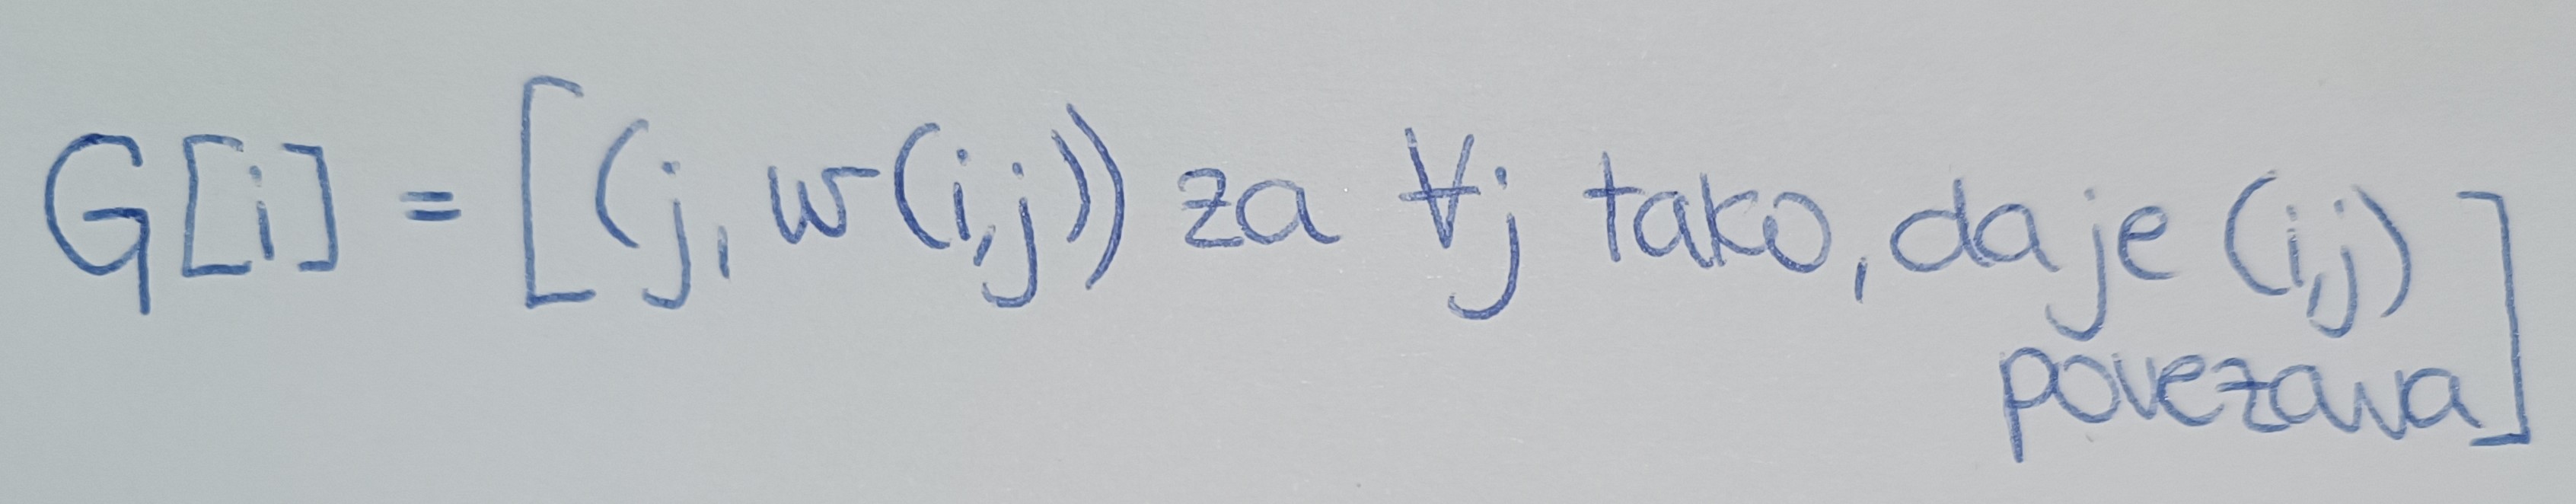 G[i] = [(j, w(i,j)) za ∀j tako, da je (i,j)
povezava]